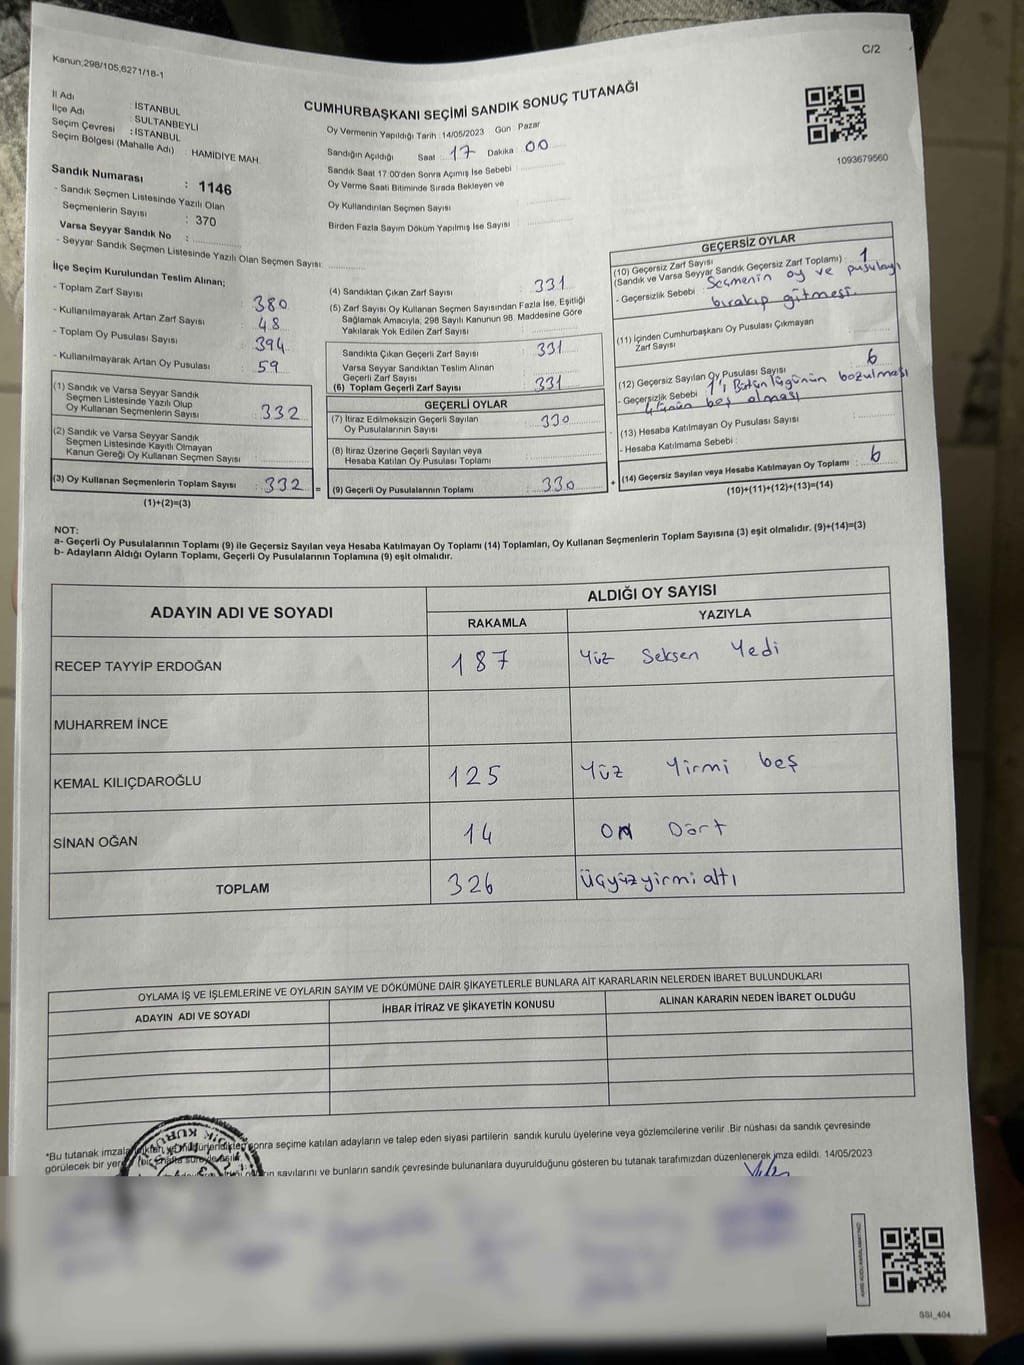 C/2
Kanun;298/105,6271/18-1
CUMHURBAŞKANI SEÇİMİ SANDIK SONUÇ TUTANAĞI
İl Adı : İSTANBUL
İlçe Adı : SULTANBEYLİ
Seçim Çevresi : İSTANBUL
Seçim Bölgesi (Mahalle Adı) : HAMİDİYE MAH.
Oy Vermenin Yapıldığı Tarih : 14/05/2023 Gün : Pazar
Sandığın Açıldığı Saat 17 Dakika 00
Sandık Saat 17:00'den Sonra Açımış İse Sebebi :
Oy Verme Saati Bitiminde Sırada Bekleyen ve
Oy Kullandırılan Seçmen Sayısı
Birden Fazla Sayım Döküm Yapılmış İse Sayısı
1093679560
Sandık Numarası : 1146
- Sandık Seçmen Listesinde Yazılı Olan
Seçmenlerin Sayısı : 370
Varsa Seyyar Sandık No :
- Seyyar Sandık Seçmen Listesinde Yazılı Olan Seçmen Sayısı:
İlçe Seçim Kurulundan Teslim Alınan;
- Toplam Zarf Sayısı : 380
- Kullanılmayarak Artan Zarf Sayısı : 48
- Toplam Oy Pusulası Sayısı : 394
- Kullanılmayarak Artan Oy Pusulası : 59
(1) Sandık ve Varsa Seyyar Sandık
Seçmen Listesinde Yazılı Olup
Oy Kullanan Seçmenlerin Sayısı : 332
(2) Sandık ve Varsa Seyyar Sandık
Seçmen Listesinde Kayıtlı Olmayan
Kanun Gereği Oy Kullanan Seçmen Sayısı :
(3) Oy Kullanan Seçmenlerin Toplam Sayısı : 332 =
(1)+(2)=(3)
(4) Sandıktan Çıkan Zarf Sayısı : 331
(5) Zarf Sayısı Oy Kullanan Seçmen Sayısından Fazla İse, Eşitliği
Sağlamak Amacıyla, 298 Sayılı Kanunun 98. Maddesine Göre
Yakılarak Yok Edilen Zarf Sayısı :
Sandıkta Çıkan Geçerli Zarf Sayısı : 331
Varsa Seyyar Sandıktan Teslim Alınan
Geçerli Zarf Sayısı :
(6) Toplam Geçerli Zarf Sayısı : 331
GEÇERLİ OYLAR
(7) İtiraz Edilmeksizin Geçerli Sayılan
Oy Pusulalarının Sayısı : 330
(8) İtiraz Üzerine Geçerli Sayılan veya
Hesaba Katılan Oy Pusulası Toplamı :
(9) Geçerli Oy Pusulalarının Toplamı : 330 +
GEÇERSİZ OYLAR
(10) Geçersiz Zarf Sayısı
(Sandık ve Varsa Seyyar Sandık Geçersiz Zarf Toplamı) : 1
- Geçersizlik Sebebi : Seçmenin oy ve pusulayı
bırakıp gitmesi.
(11) İçinden Cumhurbaşkanı Oy Pusulası Çıkmayan
Zarf Sayısı :
(12) Geçersiz Sayılan Oy Pusulası Sayısı : 6
- Geçersizlik Sebebi 1'i Bütünlüğünün bozulması
4'ünün beş olması
(13) Hesaba Katılmayan Oy Pusulası Sayısı :
- Hesaba Katılmama Sebebi :
(14) Geçersiz Sayılan veya Hesaba Katılmayan Oy Toplamı : 6
(10)+(11)+(12)+(13)=(14)
NOT:
a- Geçerli Oy Pusulalarının Toplamı (9) ile Geçersiz Sayılan veya Hesaba Katılmayan Oy Toplamı (14) Toplamları, Oy Kullanan Seçmenlerin Toplam Sayısına (3) eşit olmalıdır. (9)+(14)=(3)
b- Adayların Aldığı Oyların Toplamı, Geçerli Oy Pusulalarının Toplamına (9) eşit olmalıdır.
ADAYIN ADI VE SOYADI
ALDIĞI OY SAYISI
RAKAMLA YAZIYLA
RECEP TAYYİP ERDOĞAN 187 Yüz Seksen Yedi
MUHARREM İNCE
KEMAL KILIÇDAROĞLU 125 Yüz Yirmi beş
SİNAN OĞAN 14 On Dört
TOPLAM 326 Üçyüzyirmialtı
OYLAMA İŞ VE İŞLEMLERİNE VE OYLARIN SAYIM VE DÖKÜMÜNE DAİR ŞİKAYETLERLE BUNLARA AİT KARARLARIN NELERDEN İBARET BULUNDUKLARI
ADAYIN ADI VE SOYADI İHBAR İTİRAZ VE ŞİKAYETİN KONUSU ALINAN KARARIN NEDEN İBARET OLDUĞU
*Bu tutanak sonra seçime katılan adayların ve talep eden siyasi partilerin sandık kurulu üyelerine veya gözlemcilerine verilir .Bir nüshası da sandık çevresinde
görülecek bir yere
sayılarını ve bunların sandık çevresinde bulunanlara duyurulduğunu gösteren bu tutanak tarafımızdan düzenlenerek imza edildi. 14/05/2023
SSI_404